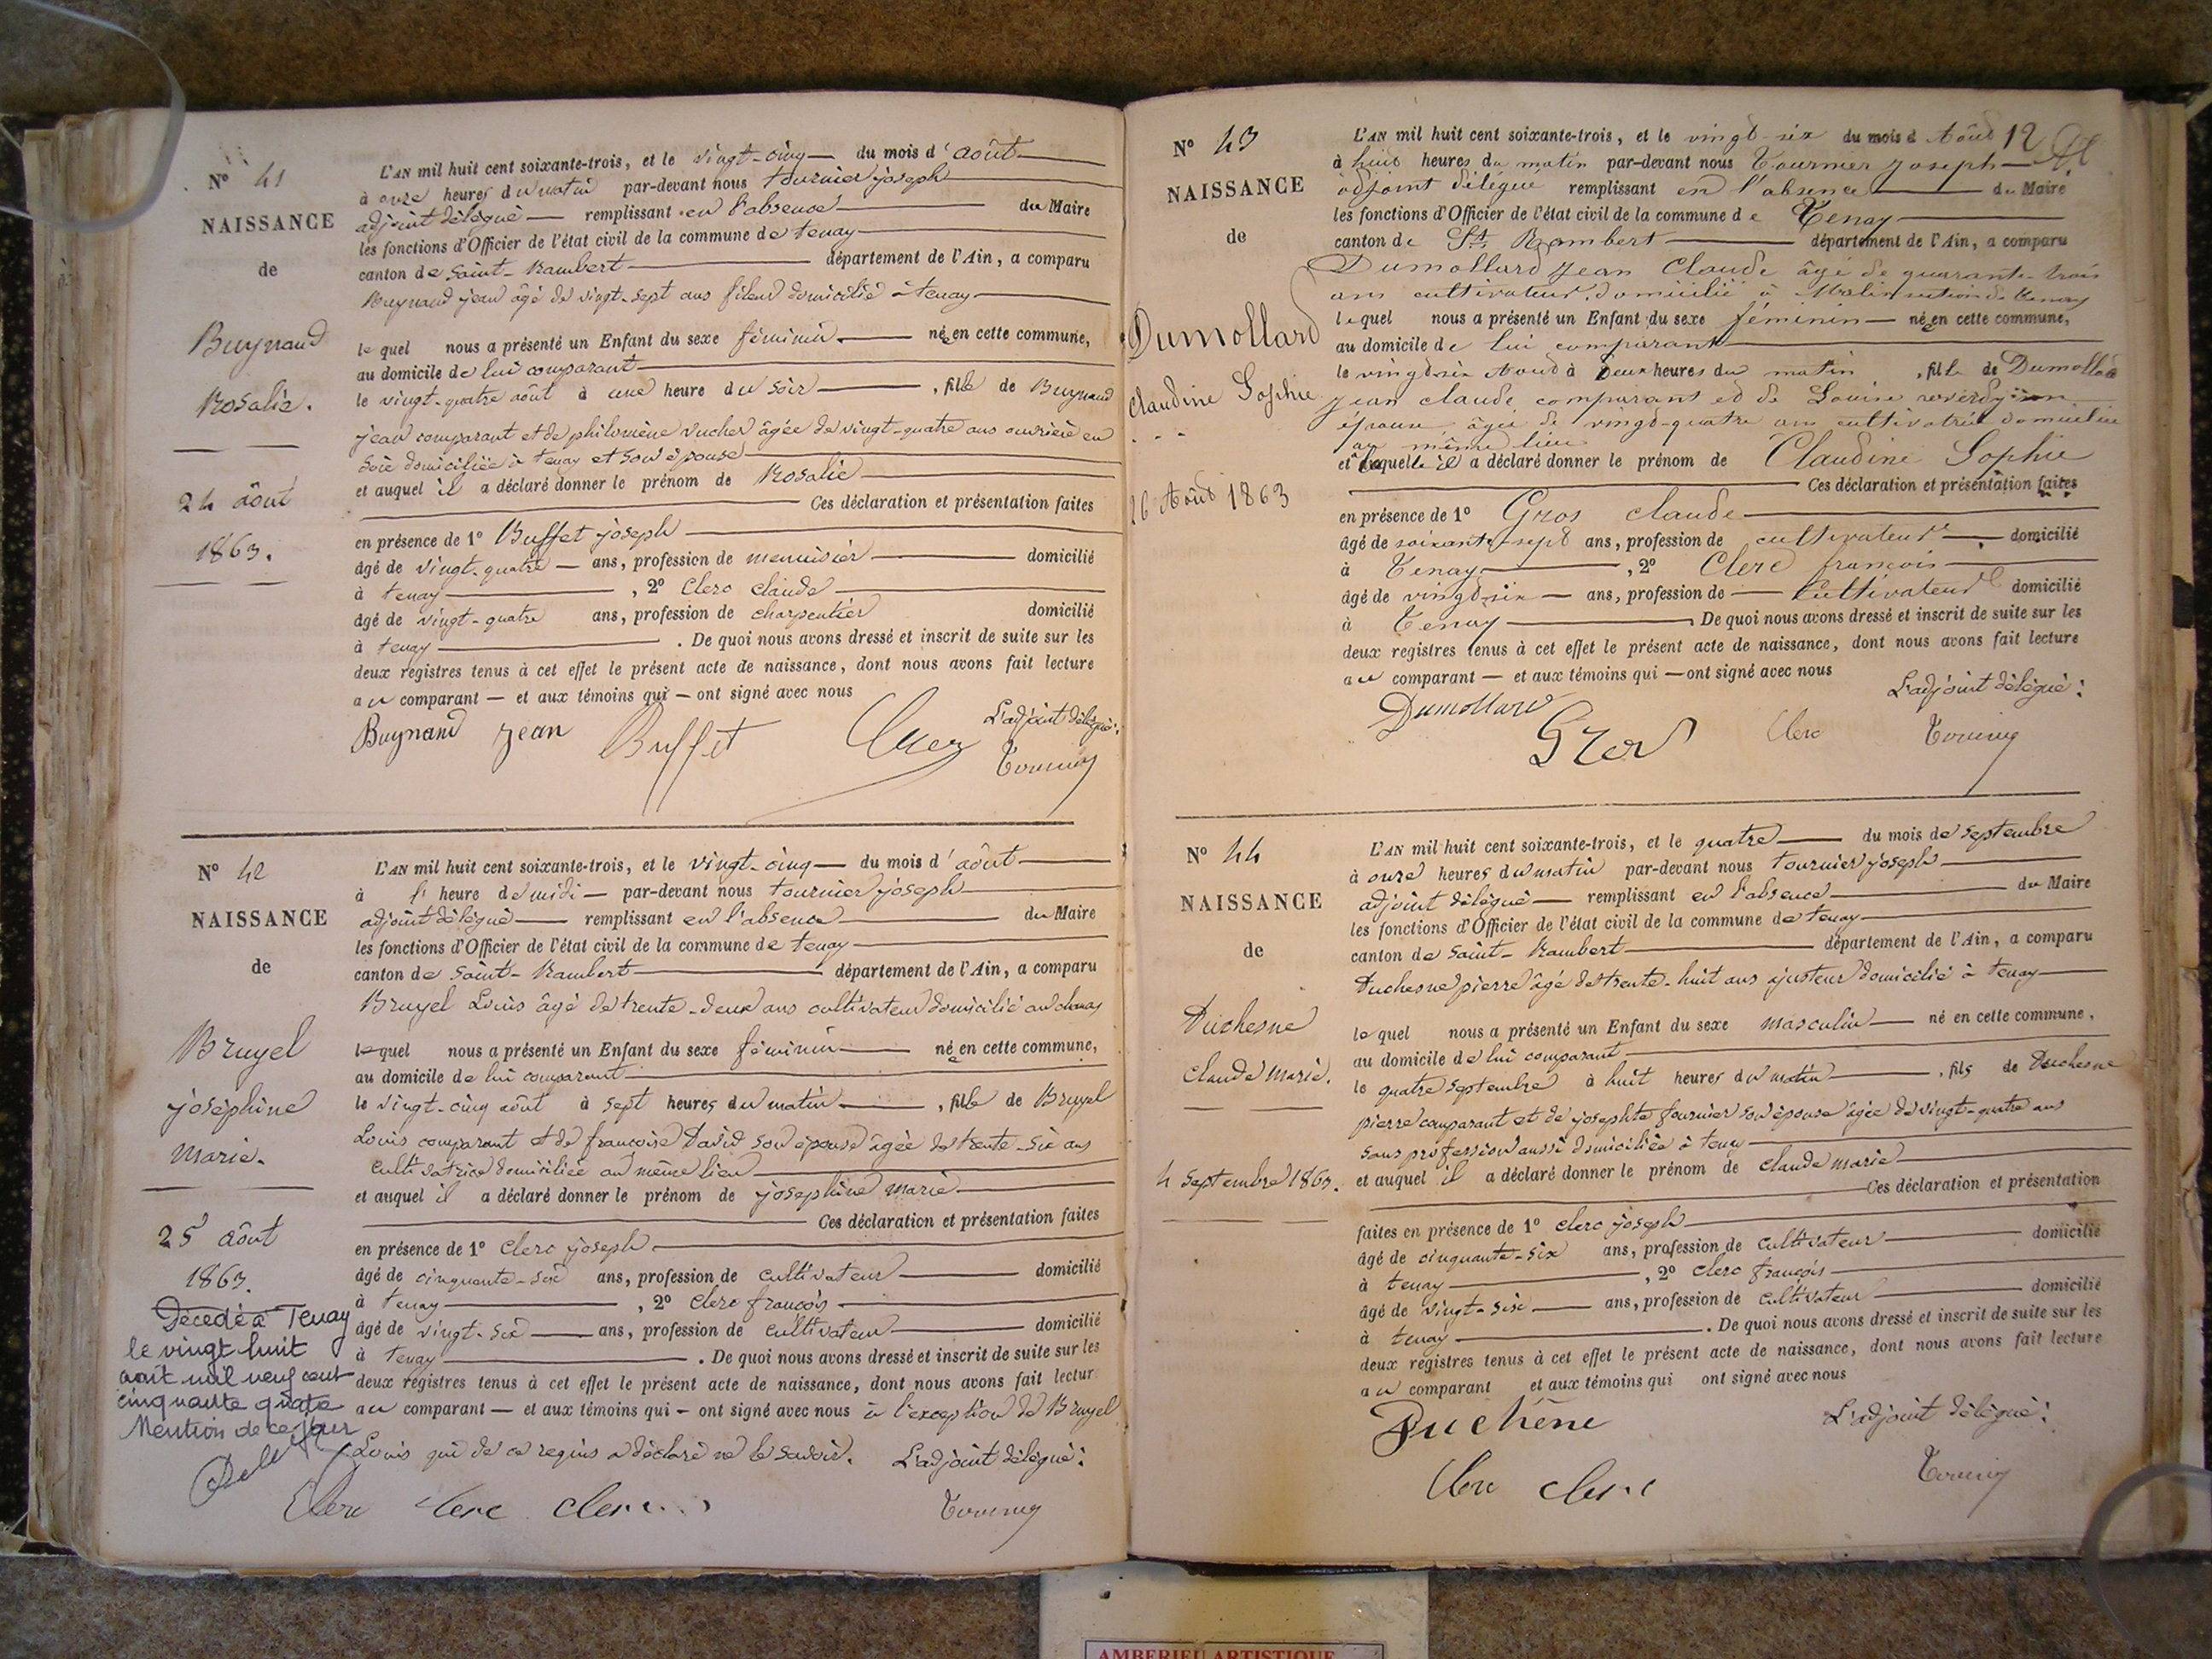 N° 41
NAISSANCE
de
Buynand
Rosalie.
24 août
1863.
L'AN mil huit cent soixante-trois, et le vingt-cinq du mois d'août
à onze heures du matin par-devant nous tournier joseph
adjoint délégué remplissant en l'absence du Maire
les fonctions d'Officier de l'état civil de la commune de tenay
canton de saint-Rambert département de l'Ain, a comparu
Buynand jean âgé de vingt-sept ans fileur domicilié à tenay
le quel nous a présenté un Enfant du sexe féminin née en cette commune,
au domicile de lui comparant
le vingt-quatre août à une heure du soir, fille de Buynand
jean comparant et de philomène Vucher âgée de vingt-quatre ans ouvrière en
soie domiciliée à tenay et son épouse
et auquel il a déclaré donner le prénom de Rosalie
Ces déclaration et présentation faites
en présence de 1° Buffet joseph
âgé de vingt-quatre ans, profession de menuisier domicilié
à tenay, 2° Clerc claude
âgé de vingt-quatre ans, profession de charpentier domicilié
à tenay. De quoi nous avons dressé et inscrit de suite sur les
deux registres tenus à cet effet le présent acte de naissance, dont nous avons fait lecture
au comparant — et aux témoins qui — ont signé avec nous
L'adjoint délégué:
Buynand jean Buffet Clerc
N° 42
NAISSANCE
de
Bruyel
joséphine
marie.
25 août
1863.
Décédé à Tenay
le vingt huit
août mil neuf cent
cinquante quatre
Mention de ce jour
L'AN mil huit cent soixante-trois, et le vingt-cinq du mois d'août
à l'heure de midi par-devant nous tournier joseph
adjoint délégué remplissant en l'absence du Maire
les fonctions d'Officier de l'état civil de la commune de tenay
canton de saint-Rambert département de l'Ain, a comparu
Bruyel Louis âgé de trente-deux ans cultivateur domicilié au
le quel nous a présenté un Enfant du sexe féminin née en cette commune,
au domicile de lui comparant
le vingt-cinq août à sept heures du matin, fille de Bruyel
Louis comparant et de françoise David son épouse âgée de trente-six ans
cultivatrice domiciliée au même lieu
et auquel il a déclaré donner le prénom de joséphine marie
Ces déclaration et présentation faites
en présence de 1° clerc joseph
âgé de cinquante-six ans, profession de cultivateur domicilié
à tenay, 2° clerc françois
âgé de vingt-six ans, profession de cultivateur domicilié
à tenay. De quoi nous avons dressé et inscrit de suite sur les
deux registres tenus à cet effet le présent acte de naissance, dont nous avons fait lectur
au comparant — et aux témoins qui — ont signé avec nous à l'exception de Bruyel
Louis qui de ce requis a déclaré ne le savoir. L'adjoint délégué:
Clerc clerc clerc
N° 43
NAISSANCE
de
Dumollard
Claudine Sophie
26 Août 1863
L'AN mil huit cent soixante-trois, et le vingt-six du mois d Août 12
à huit heures du matin par-devant nous Tournier Joseph
adjoint délégué remplissant en l'absence du Maire
les fonctions d'Officier de l'état civil de la commune de Tenay
canton de St Rambert département de l'Ain, a comparu
Dumollard Jean Claude âgé de quarante-trois
ans cultivateur, domicilié à Malix section de tenay
lequel nous a présenté un Enfant du sexe féminin née en cette commune,
au domicile de lui comparant
le vingt-six Août à deux heures du matin, fille de Dumollard
jean claude comparant et de Louise
épouse âgée de vingt-quatre ans cultivatrice domiciliée
au même lieu
et laquelle il a déclaré donner le prénom de Claudine Sophie
Ces déclaration et présentation faites
en présence de 1° Gros claude
âgé de soixante-sept ans, profession de cultivateur domicilié
à Tenay, 2° Clerc françois
âgé de vingt-six ans, profession de Cultivateur domicilié
à Tenay De quoi nous avons dressé et inscrit de suite sur les
deux registres tenus à cet effet le présent acte de naissance, dont nous avons fait lecture
au comparant — et aux témoins qui — ont signé avec nous
L'adjoint délégué:
Dumollard Gros Clerc
N° 44
NAISSANCE
de
Duchesne
Claude marie.
4 septembre 1863.
L'AN mil huit cent soixante-trois, et le quatre du mois de septembre
à onze heures du matin par-devant nous tournier joseph
adjoint délégué remplissant en l'absence du Maire
les fonctions d'Officier de l'état civil de la commune de tenay
canton de saint-Rambert département de l'Ain, a comparu
Duchesne pierre âgé de trente-huit ans ajusteur domicilié à tenay
le quel nous a présenté un Enfant du sexe masculin né en cette commune,
au domicile de lui comparant
le quatre septembre à huit heures du matin, fils de Duchesne
pierre comparant et de josephte fournier son épouse âgée de vingt-quatre ans
sans profession aussi domiciliée à tenay
et auquel il a déclaré donner le prénom de claude marie
Ces déclaration et présentation
faites en présence de 1° clerc joseph
âgé de cinquante-six ans, profession de cultivateur domicilié
à tenay, 2° clerc françois
âgé de vingt-six ans, profession de cultivateur domicilié
à tenay. De quoi nous avons dressé et inscrit de suite sur les
deux registres tenus à cet effet le présent acte de naissance, dont nous avons fait lecture
au comparant et aux témoins qui ont signé avec nous
L'adjoint délégué:
Duchêne
Clerc clerc
AMBERIEU ARTISTIQUE